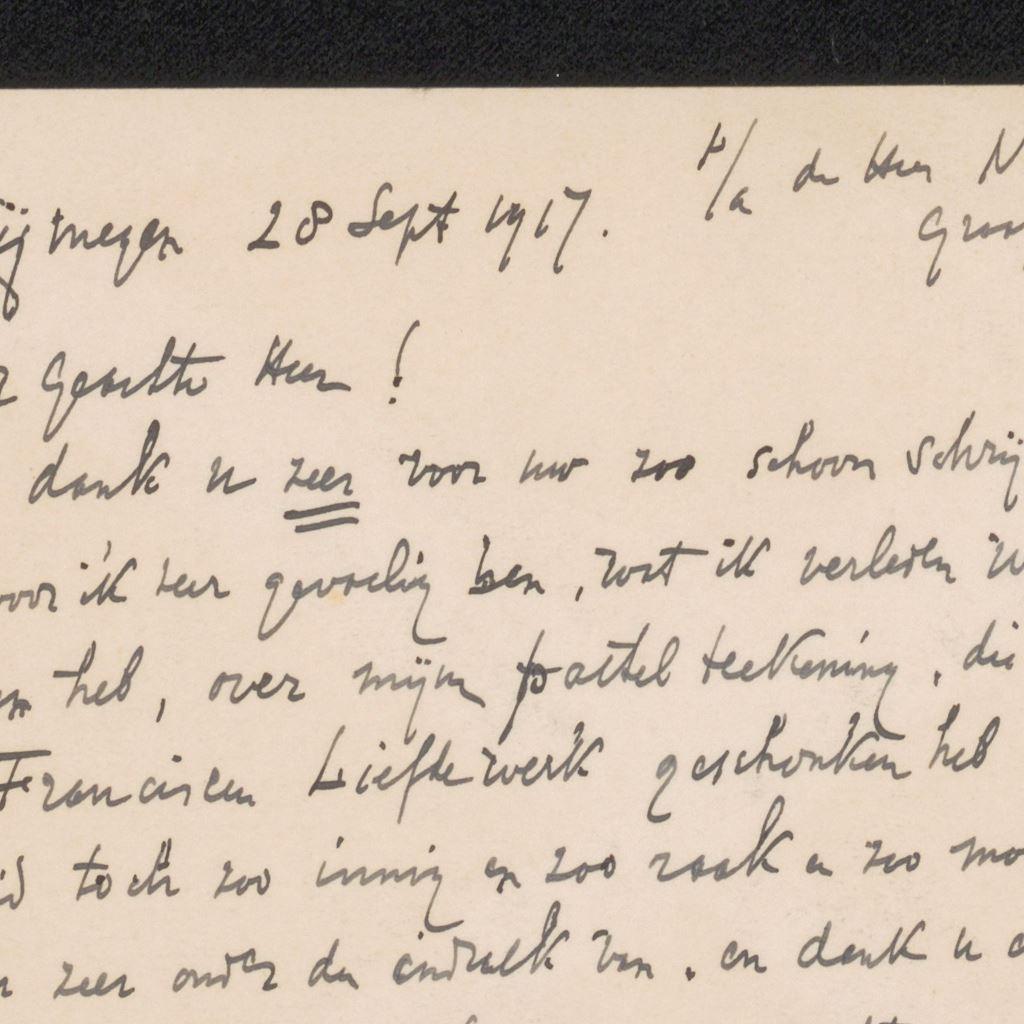 ijmegen 28 Sept 1917. p/a de Heer N
Groo
r Geachte Heer!
dank u zeer voor uw zoo schoon schrij
voor ik zeer gevoelig ben, wat ik verleden w
en heb, over mijn pastel teekening, die
Franciscen Liefdewerk geschonken heb
id toch zoo innig en zoo raak en zoo mo
n zeer onder den indruk van. en dank u